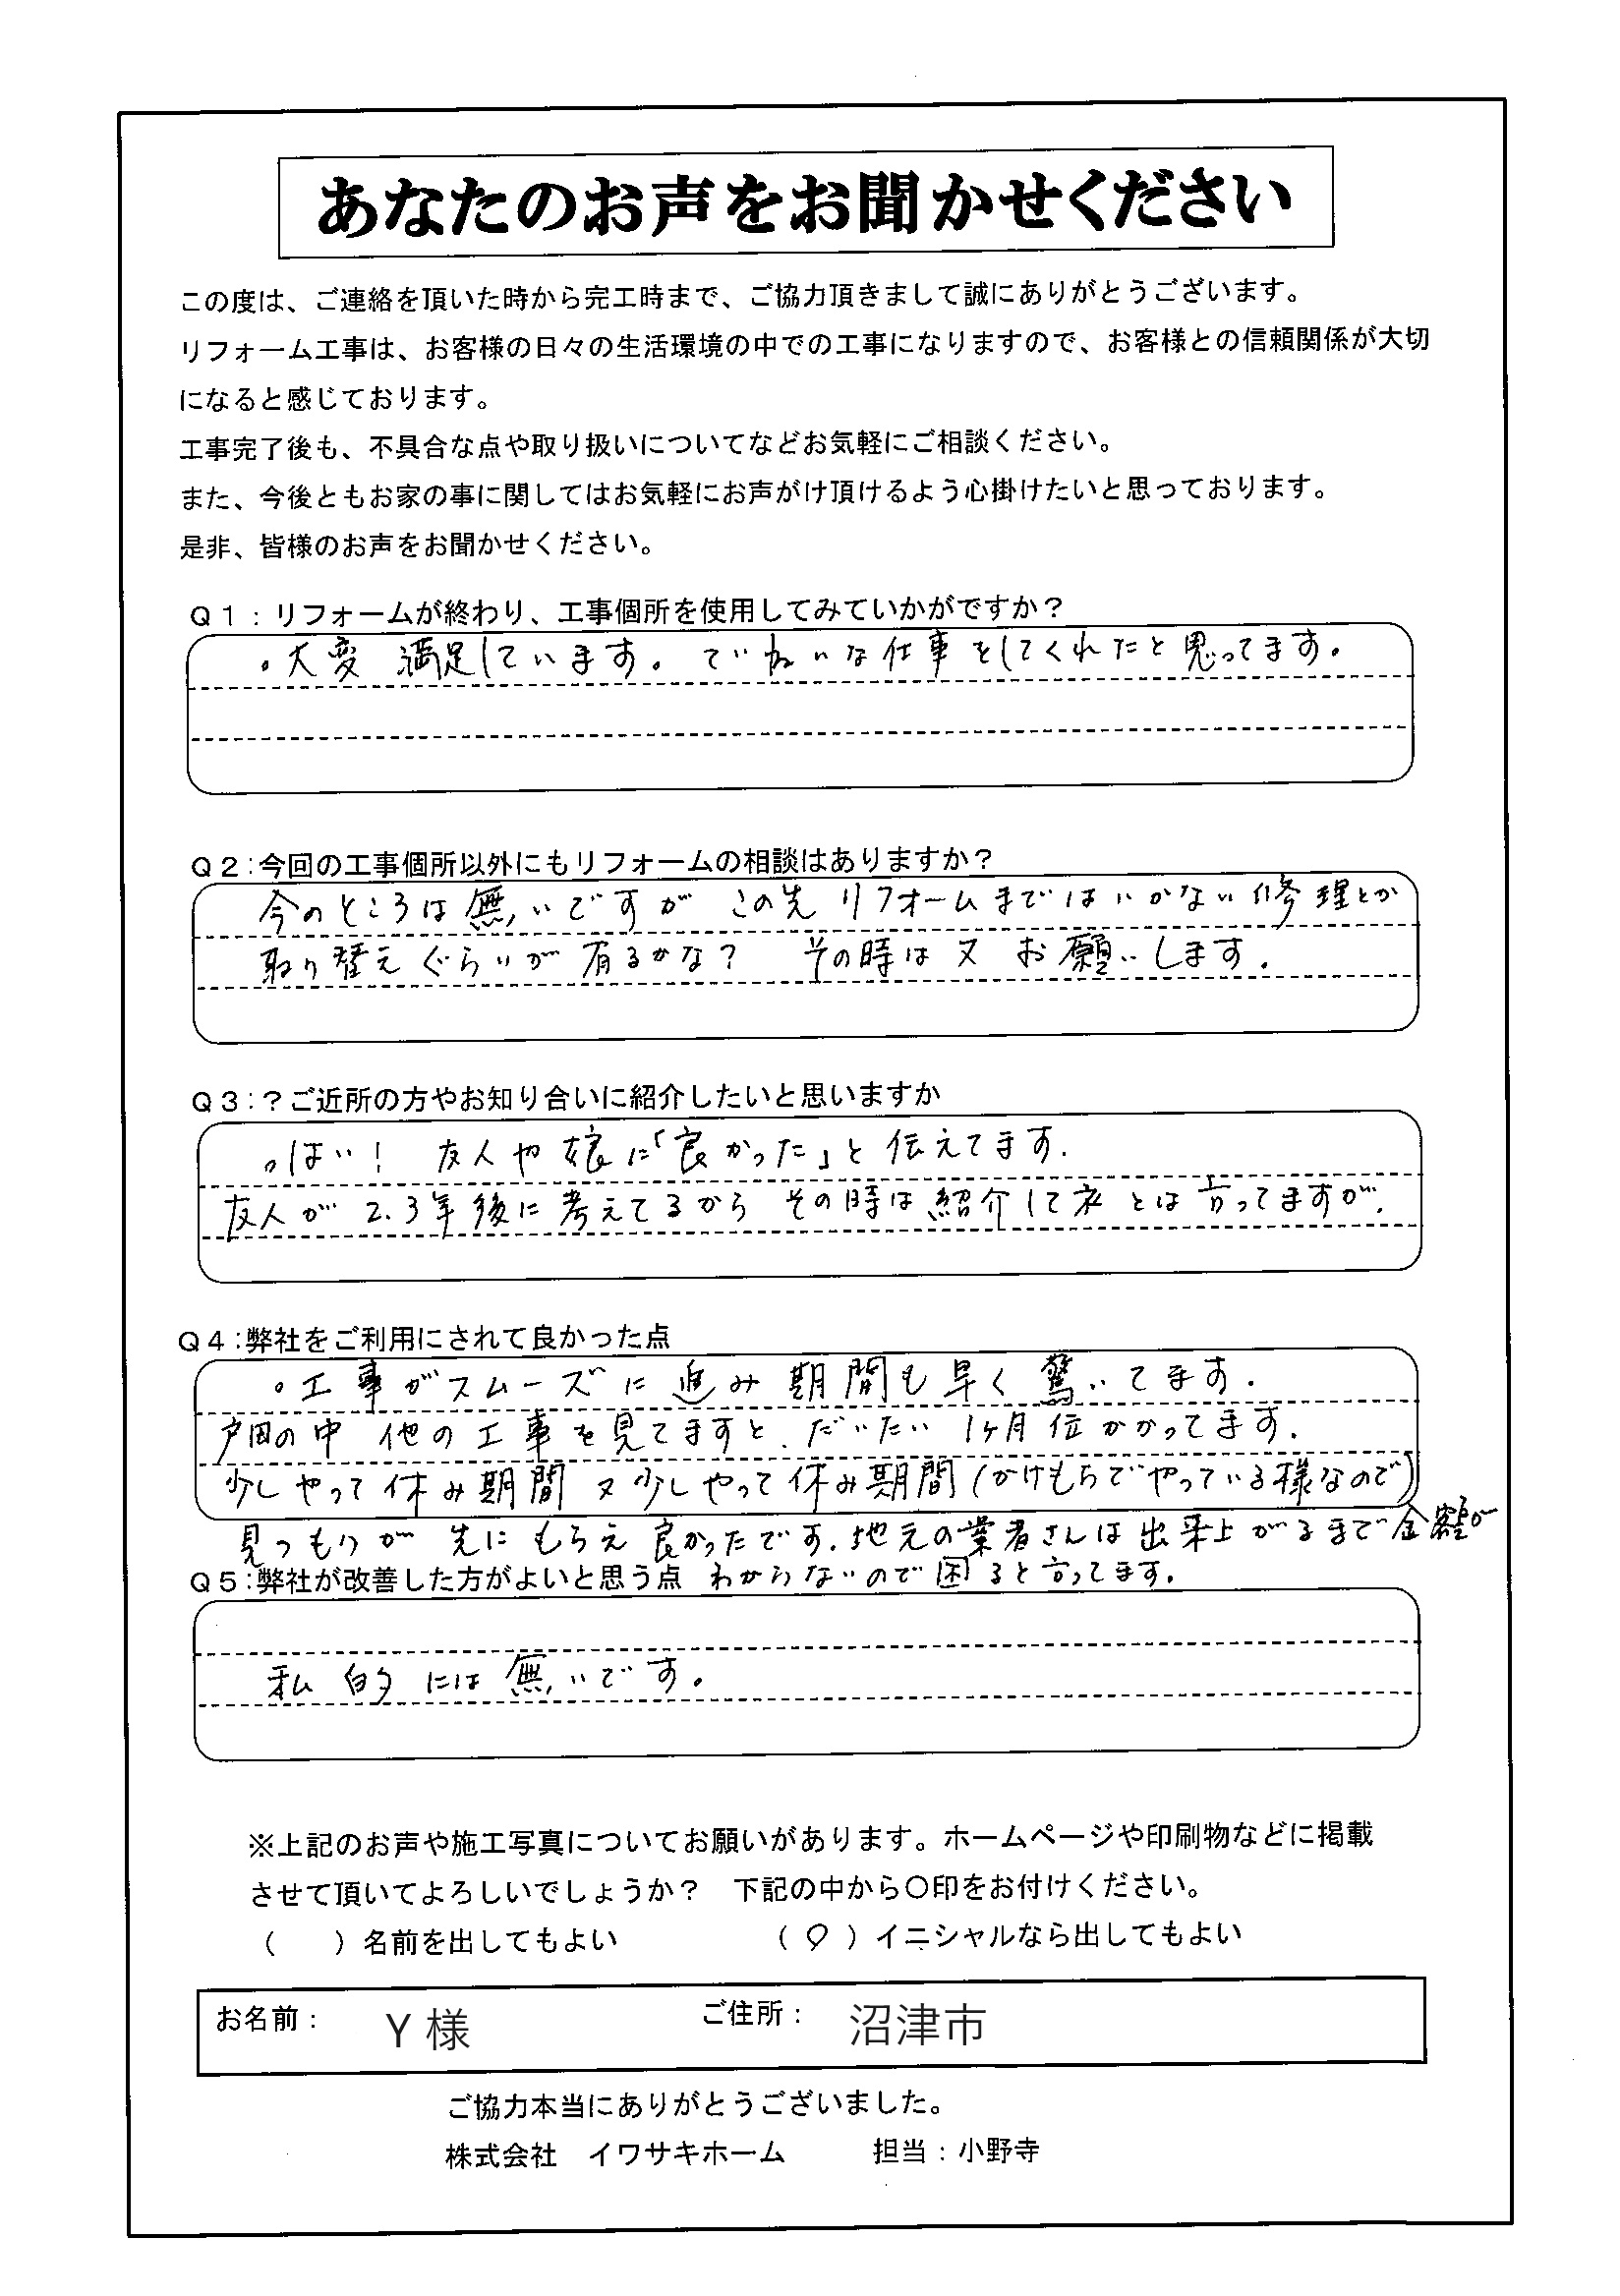 あなたのお声をお聞かせください
この度は、ご連絡を頂いた時から完工時まで、ご協力頂きまして誠にありがとうございます。
リフォーム工事は、お客様の日々の生活環境の中での工事になりますので、お客様との信頼関係が大切
になると感じております。
工事完了後も、不具合な点や取り扱いについてなどお気軽にご相談ください。
また、今後ともお家の事に関してはお気軽にお声がけ頂けるよう心掛けたいと思っております。
是非、皆様のお声をお聞かせください。
Q1：リフォームが終わり、工事個所を使用してみていかがですか？
。大変 満足しています。ていねいな仕事をしてくれたと思ってます。
Q2：今回の工事個所以外にもリフォームの相談はありますか？
今のところは無いですが この先 リフォームまではいかない修理とか
取り替えぐらいが有るかな？ その時は又 お願いします.
Q3：？ご近所の方やお知り合いに紹介したいと思いますか
。はい！ 友人や娘に「良かった」と伝えてます.
友人が 2.3年後に考えてるから その時は紹介してネ とは言ってますが.
Q4：弊社をご利用にされて良かった点
。工事がスムーズに進み期間も早く驚いてます.
戸田の中 他の工事を見てますと、だいたい 1ヶ月位かかってます.
少しやって休み期間 又少しやって休み期間(かけもちでやっている様なので)
見つもりが 先にもらえ 良かったです.地元の業者さんは出来上がるまで金額が
わからないので困ると言ってます.
Q5：弊社が改善した方がよいと思う点
私的には無いです。
※上記のお声や施工写真についてお願いがあります。ホームページや印刷物などに掲載
させて頂いてよろしいでしょうか？ 下記の中から〇印をお付けください。
（　　）名前を出してもよい （ ○ ）イニシャルなら出してもよい
お名前： Y 様 ご住所： 沼津市
ご協力本当にありがとうございました。
株式会社 イワサキホーム 担当：小野寺